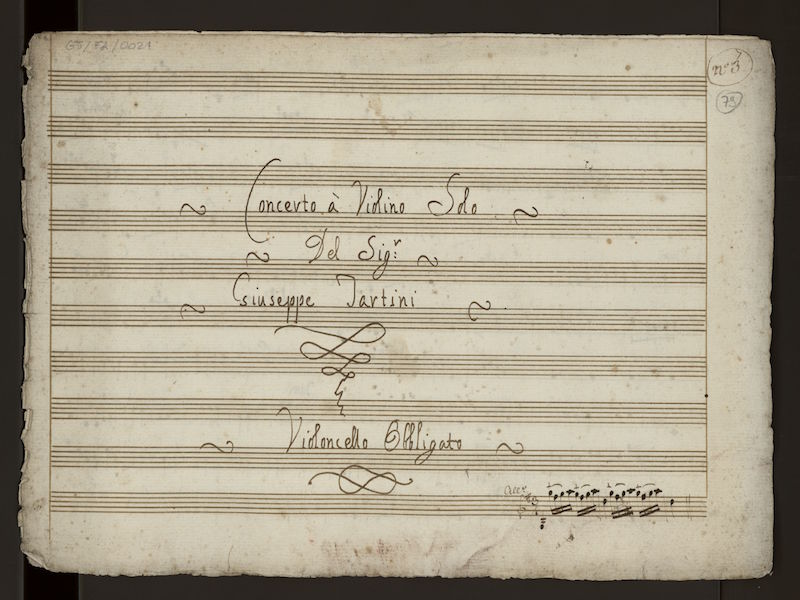 GT/FA/0021
nº 3
79
Concerto à Violino Solo
Del Sigr
Giuseppe Tartini
Violoncello Obbligato